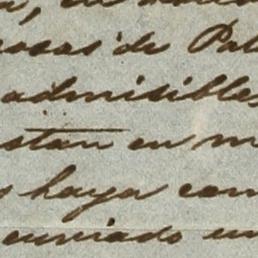 osas de Pal
admisibles
stan en m
haya con
enviado un